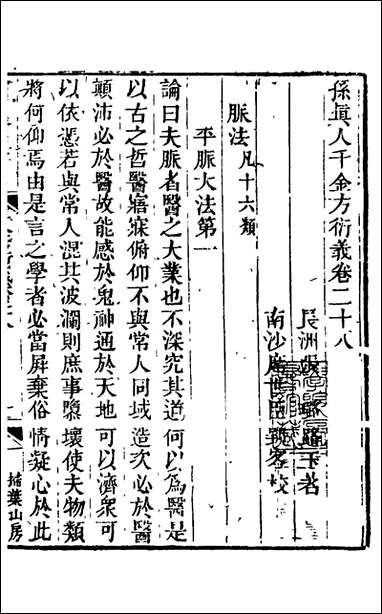 孫眞人千金方衍義卷二十八
長洲張璐路玉著
南沙席世臣鄰客校
脈法凡十六類
平脈大法第一
論曰夫脈者醫之大業也不深究其道何以爲醫是
以古之哲醫寤寐俯仰不與常人同域造次必於醫
顚沛必於醫故能感於鬼神通於天地可以濟衆可
以依憑若與常人混其波瀾則庶事隳壞使夫物類
將何仰焉由是言之學者必當屏棄俗情凝心於此
掃葉山房